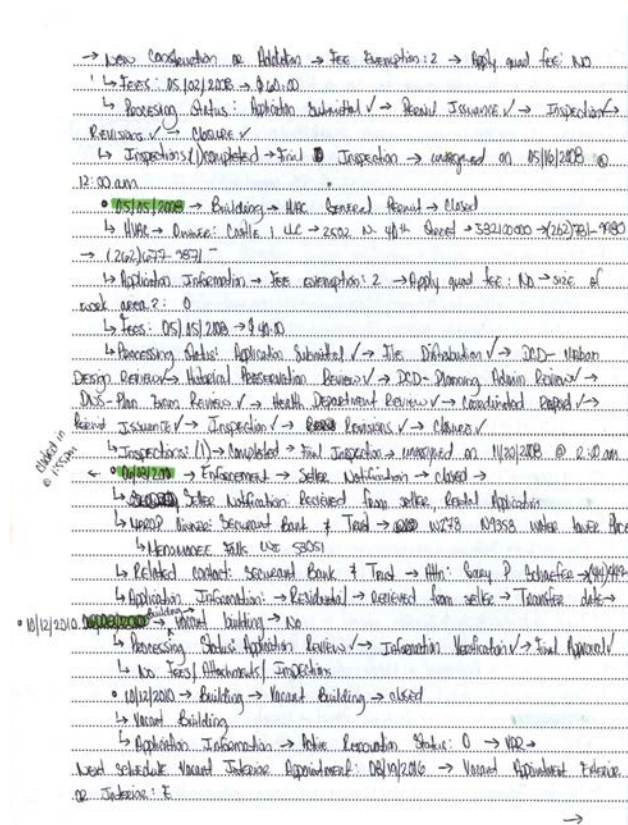 → New Construction or Addition → Fee Exemption: 2 → Apply quad fee: NO
↳ Fees: 05/02/2008 → $60.00
↳ Processing Status: Application Submittal ✓ → Permit Issuance ✓ → Inspection ✓ →
Revisions ✓ → Closure ✓
↳ Inspections: (1) completed → Final Inspection → unassigned on 05/16/2008 @
12:00 am
• 05/05/2008 → Building → HVAC General Permit → Closed
↳ HVAC → Owner: Castle 1 LLC → 2502 N. 40th Street →
→ (262)677-9871
↳ Application Information → Fee exemption: 2 → Apply quad fee: NO → size of
work area?: 0
↳ Fees: 05/05/2008 → $40.00
↳ Processing Status: Application Submittal ✓ → File Distribution ✓ → DCD - Urban
Design Review ✓ → Historical Preservation Review ✓ → DCD - Planning Admin Review ✓ →
DNS - Plan Exam Review ✓ → Health Department Review ✓ → Coordinated Report ✓ →
Permit Issuance ✓ → Inspection ✓ → Revisions ✓ → Closure ✓
↳ Inspections: (1) → Completed → Final Inspection → unassigned on 11/20/2008 @ 12:00 am
← • → Enforcement → Seller Notification → closed →
↳ Seller Notification: Recieved from seller, Rental Application
↳ Owner: Securant Bank & Trust → N278 N9353 Water Tower Place
↳ Menomonee Falls WI 53051
↳ Related contact: Securant Bank & Trust → Attn: Gary P Schaefer →
↳ Application Information: → Residential → Recieved from seller → Transfer date →
• 10/12/2010 Building → Vacant building → No
↳ Processing Status: Application Review ✓ → Information Verification ✓ → Final Approval ✓
↳ No Fees/Attachments/Inspections
• 10/12/2010 → Building → Vacant Building → closed
↳ Vacant Building
↳ Application Information → Active Renovation Status: 0 → VBR →
Next schedule Vacant Interior Appointment: 08/19/2016 → Vacant Appointment Exterior
or Interior: E
→